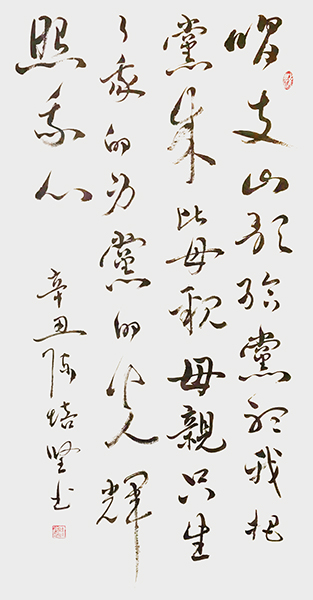 唱支山歌給黨聽我把
黨來比母親母親只生
了我的身黨的光輝
照我心
辛丑陳培堅书